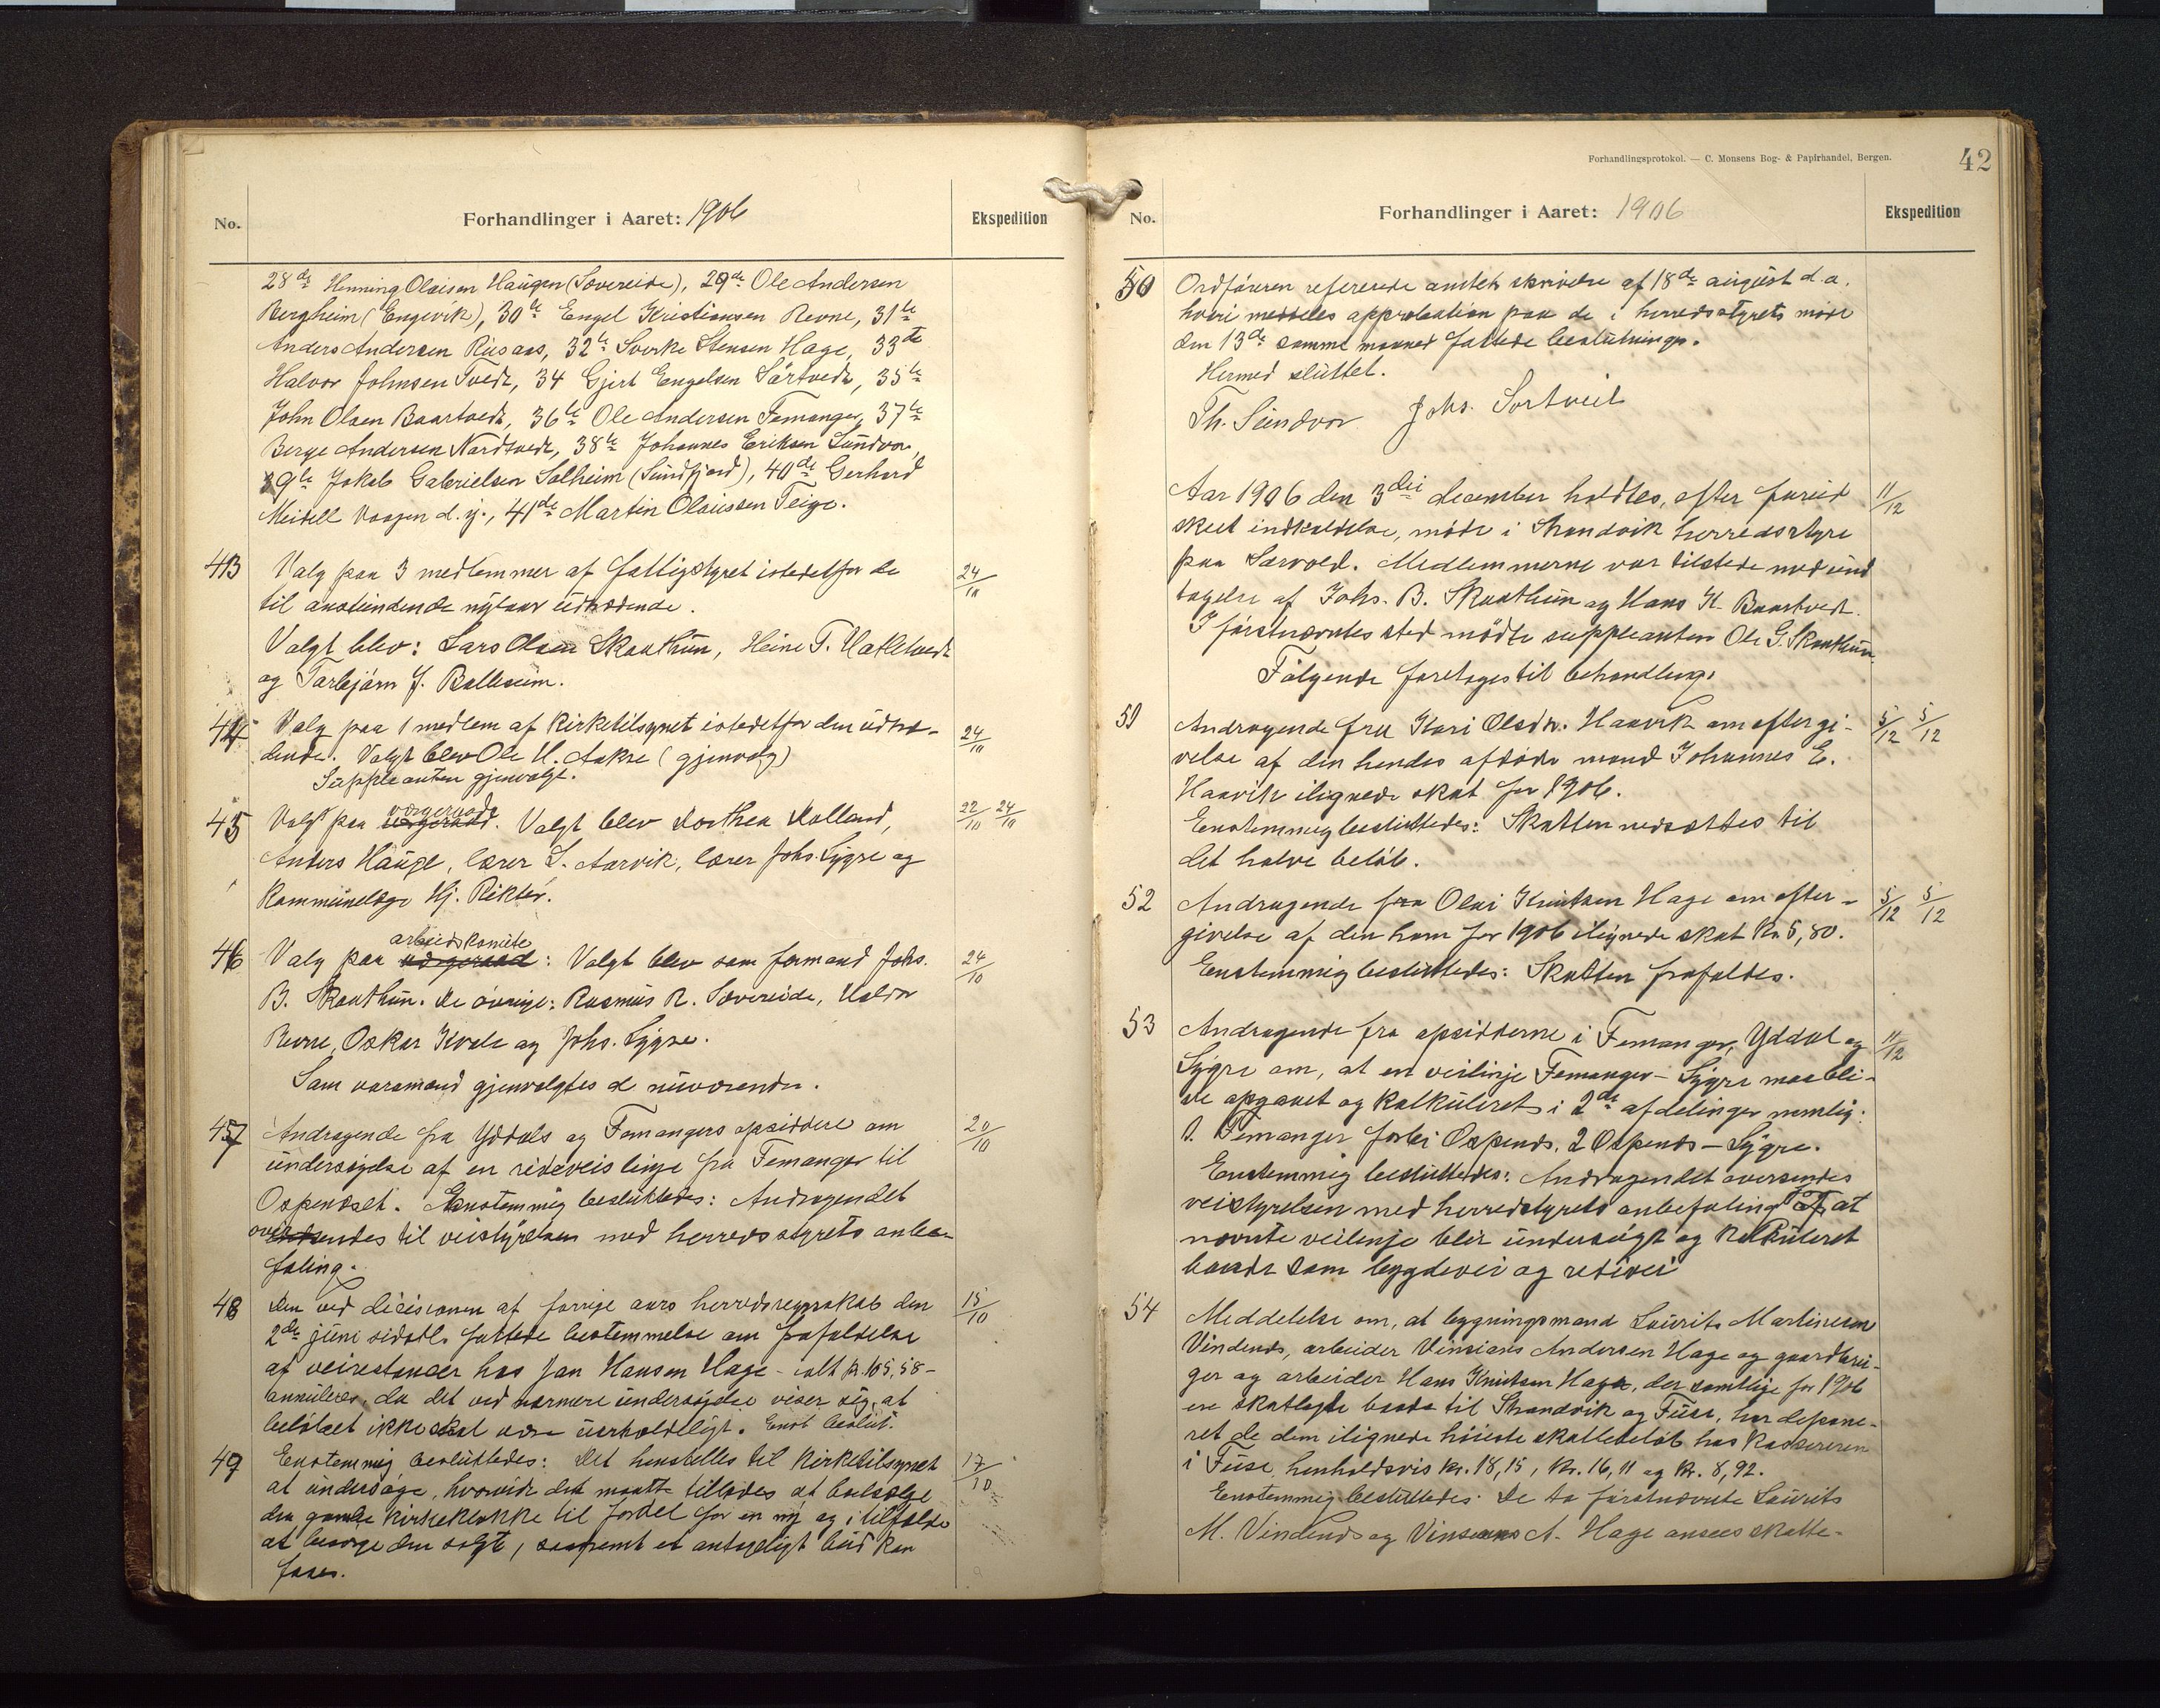 No.
Forhandlinger i Aaret: 1906
Ekspedition
28de Henning Olaisen Haugen (Sævereide), 29de Ole Andersen
Bergheim (Engevik), 30te Engel Kristiansen Revne, 31te
Anders Andersen Risaas, 32te Sverke Stensen Hage, 33de
Halvor Johnsen Tvedt, 34 Gjert Engelsen Sörtvedt, 35te
John Olsen Baartvedt, 36te Ole Andersen Femanger, 37te
Berge Andersen Nordtvedt, 38te Johannes Eriksen Sundvor,
39te Jakob Gabrielsen Solheim (Sundfjord), 40de Gerhard
Meidell Vaagen d. y., 41de Martin Olaussen Teige.
43 Valg paa 3 medlemmer af fattigstyret istedetfor de 24/10
til anstundende nytaar udtrædende.
Valgt blev: Lars Olsen Skaathun, Heine T. Hatletvedt
og Torbjörn J. Balleseim.
44 Valg paa 1 medlem af kirketilsynet istedetfor den udtræ- 24/10
dende. Valgt blev Ole H. Aakre (gjenvalg)
Suppleanten gjenvalgt.
45 Valgt paa vergeraad. Valgt blev Dorthea Kolland, 22/10 24/10
Anders Hauge, lærer L. Aarvik, lærer Johs. Lygre og
Kommunelæge Hj. Rikter.
arbeidskomite
46 Valg paa vergeraad: Valgt blev som formand Johs. 24/10
B. Skaathun. De övrige: Rasmus R. Sævereide, Haldor
Revne, Oskar Kvale og Johs. Lygre.
Som varamænd gjenvalgtes de nuværende.
457 Andragende fra Yddals og Femangers opsiddere om 20/10
undersögelse af en rideveislinje fra Femanger til
Ospendset. Enstemmig besluttedes: Andragendet
oversendes til veistyrelsen med herredsstyrets anbe-
faling.
48 Den ved decisionen af forrige aars herredsregnskab den 15/10
2den juni sidstl. fattede bestemmelse om frafaldelse
af veirestancer hos Jan Hansen Hage - ialt kr. 105,58 -
annuleres, da det ved nærmere undersögelse viser sig, at
belöbet ikke skal være uerholdeligt. Enst. beslut.
49 Enstemmig besluttedes: Det henstilles til kirketilsynet 17/10
at undersöge, hvorvidt det maatte tillades at bortsælge
den gamle kirkeklokke til fordel for en ny og i tilfælde
at besörge den solgt, saafremt et antageligt bud kan
faaes.
Forhandlingsprotokol. — C. Monsens Bog- & Papirhandel, Bergen.
42
No.
Forhandlinger i Aaret: 1906
Ekspedition
50 Ordföreren refererede amtets skrivelse af 18de august d. a.
hvori meddeles approbation paa de i herredsstyrets möde
den 13de samme maaned fattede beslutninger.
Hermed sluttet.
Th. Sundvor Johs. Sortveit
Aar 1906 den 3die december holdtes, efter forud 11/12
skeet indkaldelse, möde i Strandvik herredsstyre
paa Særvold. Medlemmerne var tilstede med und
tagelse af Johs. B. Skaathun og Hans H. Baartvedt.
I förstnævntes sted mödte suppleanten Ole G. Skaathun.
Fölgende foretoges til behandling:
51 Andragende fra Kari Olsdtr. Haavik om eftergi- 5/12 5/12
velse af den hendes afdöde mand Johannes E.
Haavik ilignede skat for 1906.
Enstemmig besluttedes: Skatten nedsættes til
det halve belöb.
52 Andragende fra Olai Knutsen Hage om efter- 5/12 5/12
givelse af den ham for 1906 ilignede skat kr. 5,80.
Enstemmig besluttedes: Skatten frafaldes.
53 Andragende fra opsidderne i Femanger, Yddal og 11/12
Lygre om, at en veilinje Femanger - Lygre maa bli-
ve opgaaet og kalkuleret i 2de afdelinger nemlig:
1. Femanger forbi Ospends. 2 Ospends - Lygre.
Enstemmig besluttedes: Andragendet oversendes
veistyrelsen med herredstyrets anbefaling af, at
nævnte veilinje blir undersögt og kalkuleret
baade som bygdevei og rideivei
54 Meddelelse om, at bygningsmand Laurits Martinesen
Vindenes, arbeider Vinsians Andersen Hage og gaardbru-
ger og arbeider Hans Knutsen Hage, der samtlige for 1906
ere skatlagte baade til Strandvik og Fuse, har depone-
ret de dem ilignede höieste skattebelöb hos kassereren
i Fuse, henholdsvis kr. 18,15, kr. 16,11 og kr. 8,92.
Enstemmig besluttedes: De to förstnævnte Laurits
M. Vindenes og Vinseans A. Hage ansees skatte-